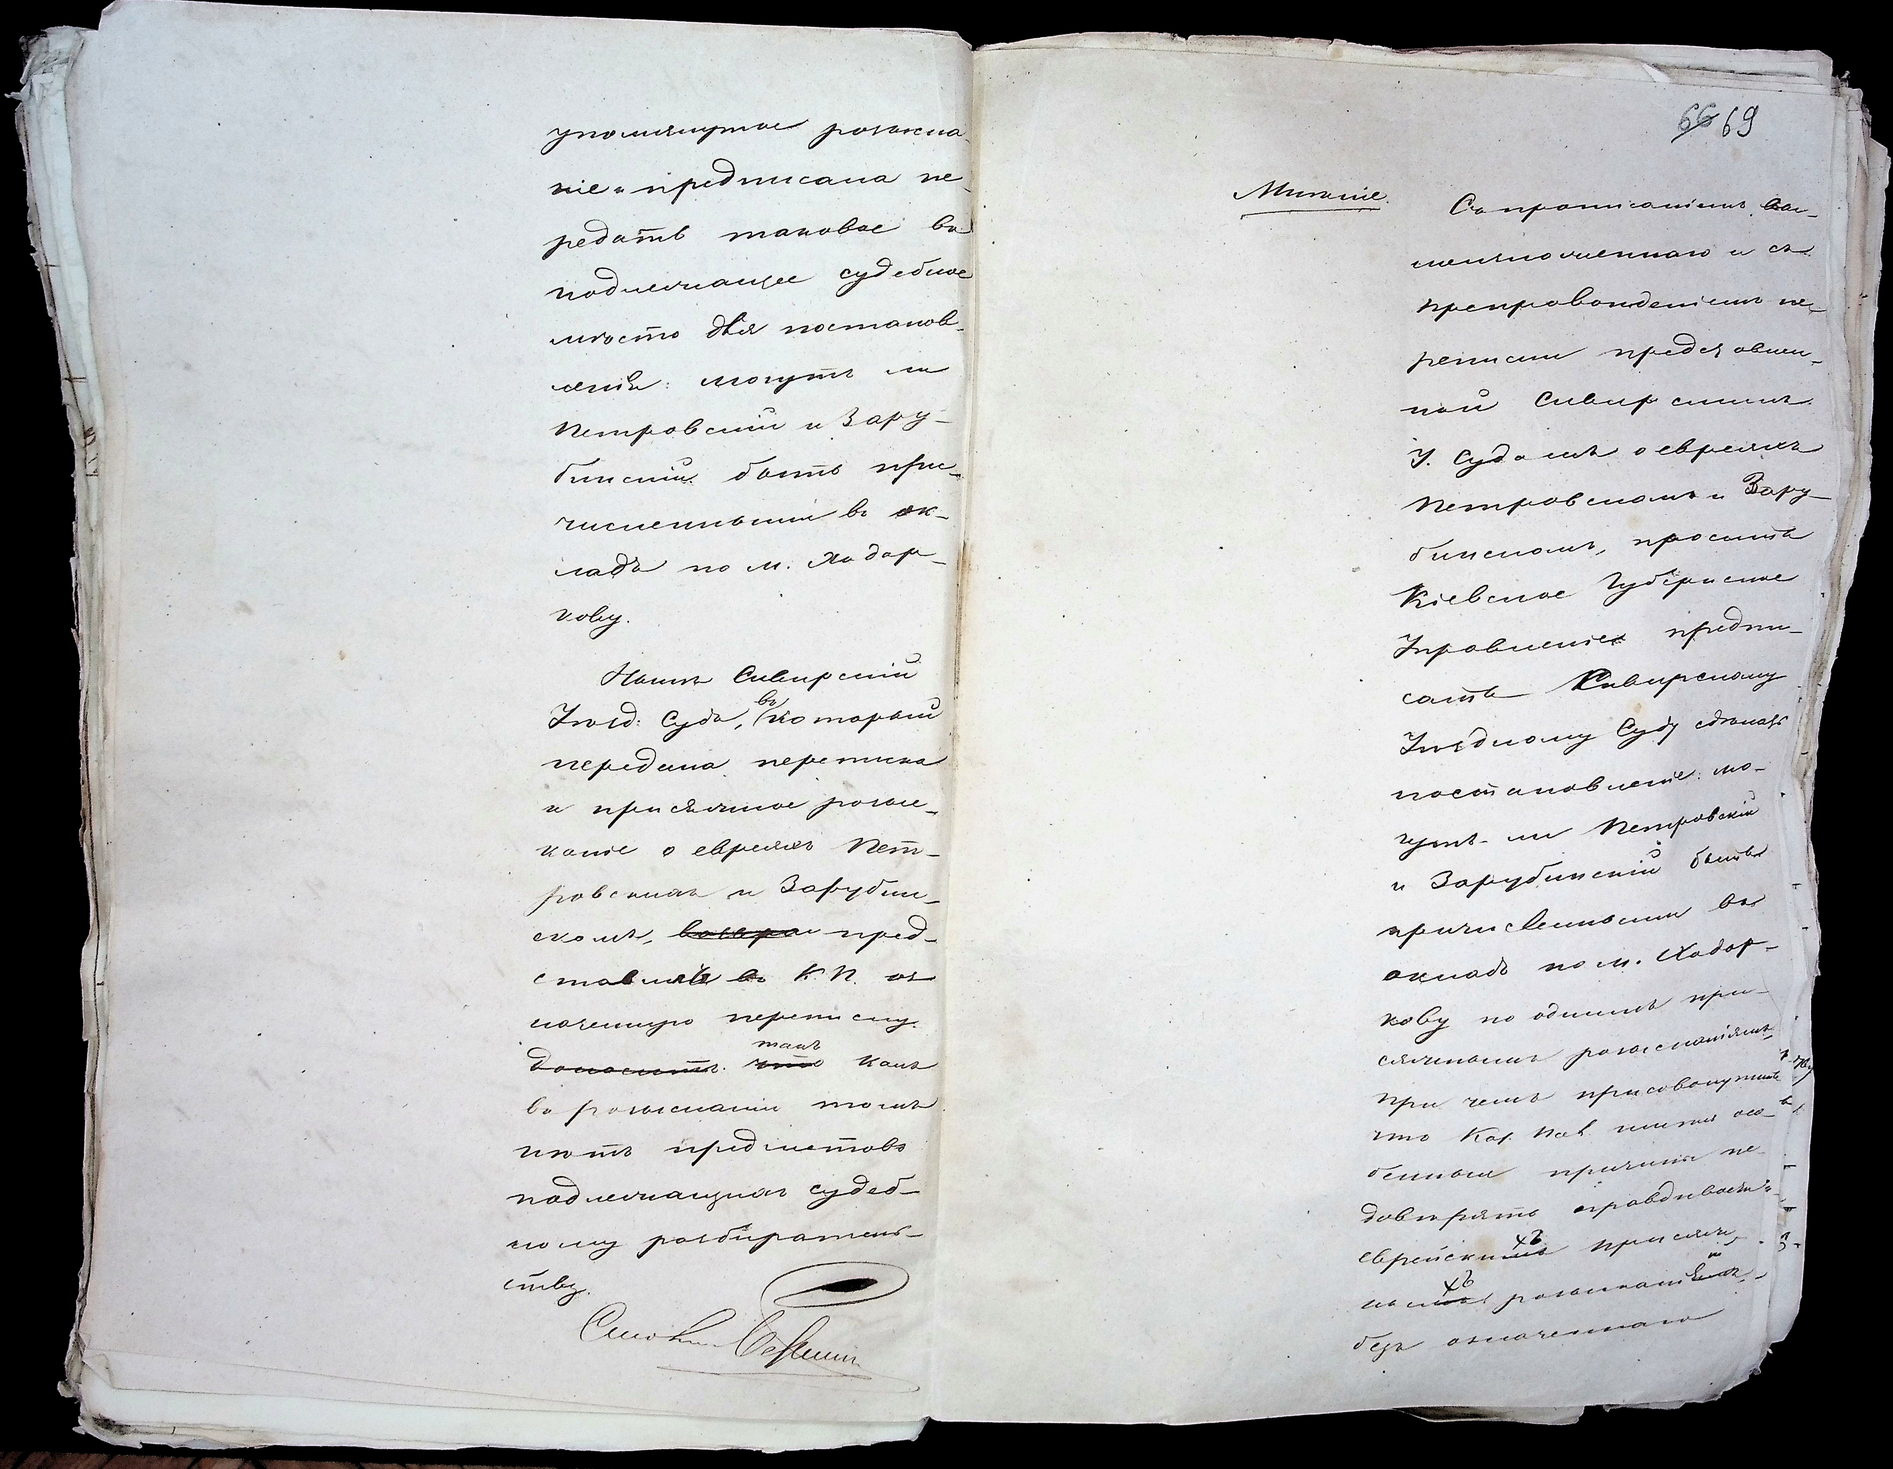 упомянутое розыска-
ніе и предписала пе-
редать таковое въ
подлежащее судебное
мѣсто для постанов-
ленія: могутъ ли
Петровскій и Зару-
бинскій быть при-
численными въ ок-
ладъ по м. Ходор-
кову.
Нынѣ Сквирскій
Уѣзд: Судъ, въ который
передана переписка
и присяжное розыс-
каніе о евреяхъ Пет-
ровскомъ и Зарубин-
скомъ, возвра пред-
ставляя въ К. П. оз-
наченную переписку.
доноситъ что такъ какъ
въ розысканіи томъ
нѣтъ предметовъ
подлежащихъ судеб-
ному разбиратель-
ству.
66 69
Мнѣніе.
Съ прописаніемъ вы-
шеизложеннаго и съ
препровожденіемъ пе-
реписки представлен-
ной Сквирскимъ
У. Судомъ о евреяхъ
Петровскомъ и Зару-
бинскомъ, просить
Кіевское Губернское
Правленіе предпи-
сать Сквирскому
Уѣздному Суду сдѣлать
постановленіе: мо-
гутъ ли Петровскій
и Зарубинскій быть
причисленными въ
окладъ по м. Ходор-
кову по однимъ при-
сяжнымъ розысканіямъ,
при чемъ присовокупить
что Каз. Пал. имѣя осо-
бенныя причины не-
довѣрять правдивости
еврейскихъ присяж-
ныхъ розысканій
безъ означеннаго